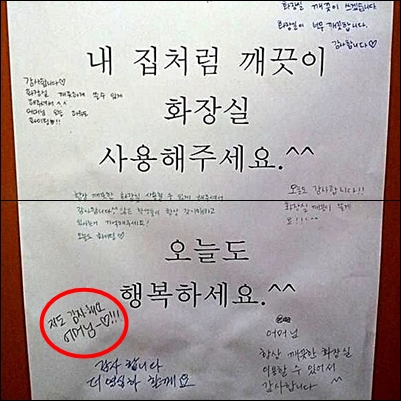 화장실 깨끗이 쓰겠습니다
화장실이 너무 깨끗합니다.
감사합니다♡
내 집처럼 깨끗이
화장실
사용해주세요.^^
감사합니다♡
화장실 깨끗하게 쓸 수 있게
해주셔서 ^^
어머님
항상 깨끗한 화장실 사용할 수 있게 해주셔서
감사합니다
오늘도 화이팅♡
오늘도 감사합니다!!
화장실 깨끗이 쓸게
요!!
오늘도
행복하세요.^^
저도 감사해요
어머님~♡!!!
감사 합니다
더 열심히 할게요
어머님
항상 깨끗한 화장실
이용할 수 있어서
감사합니다